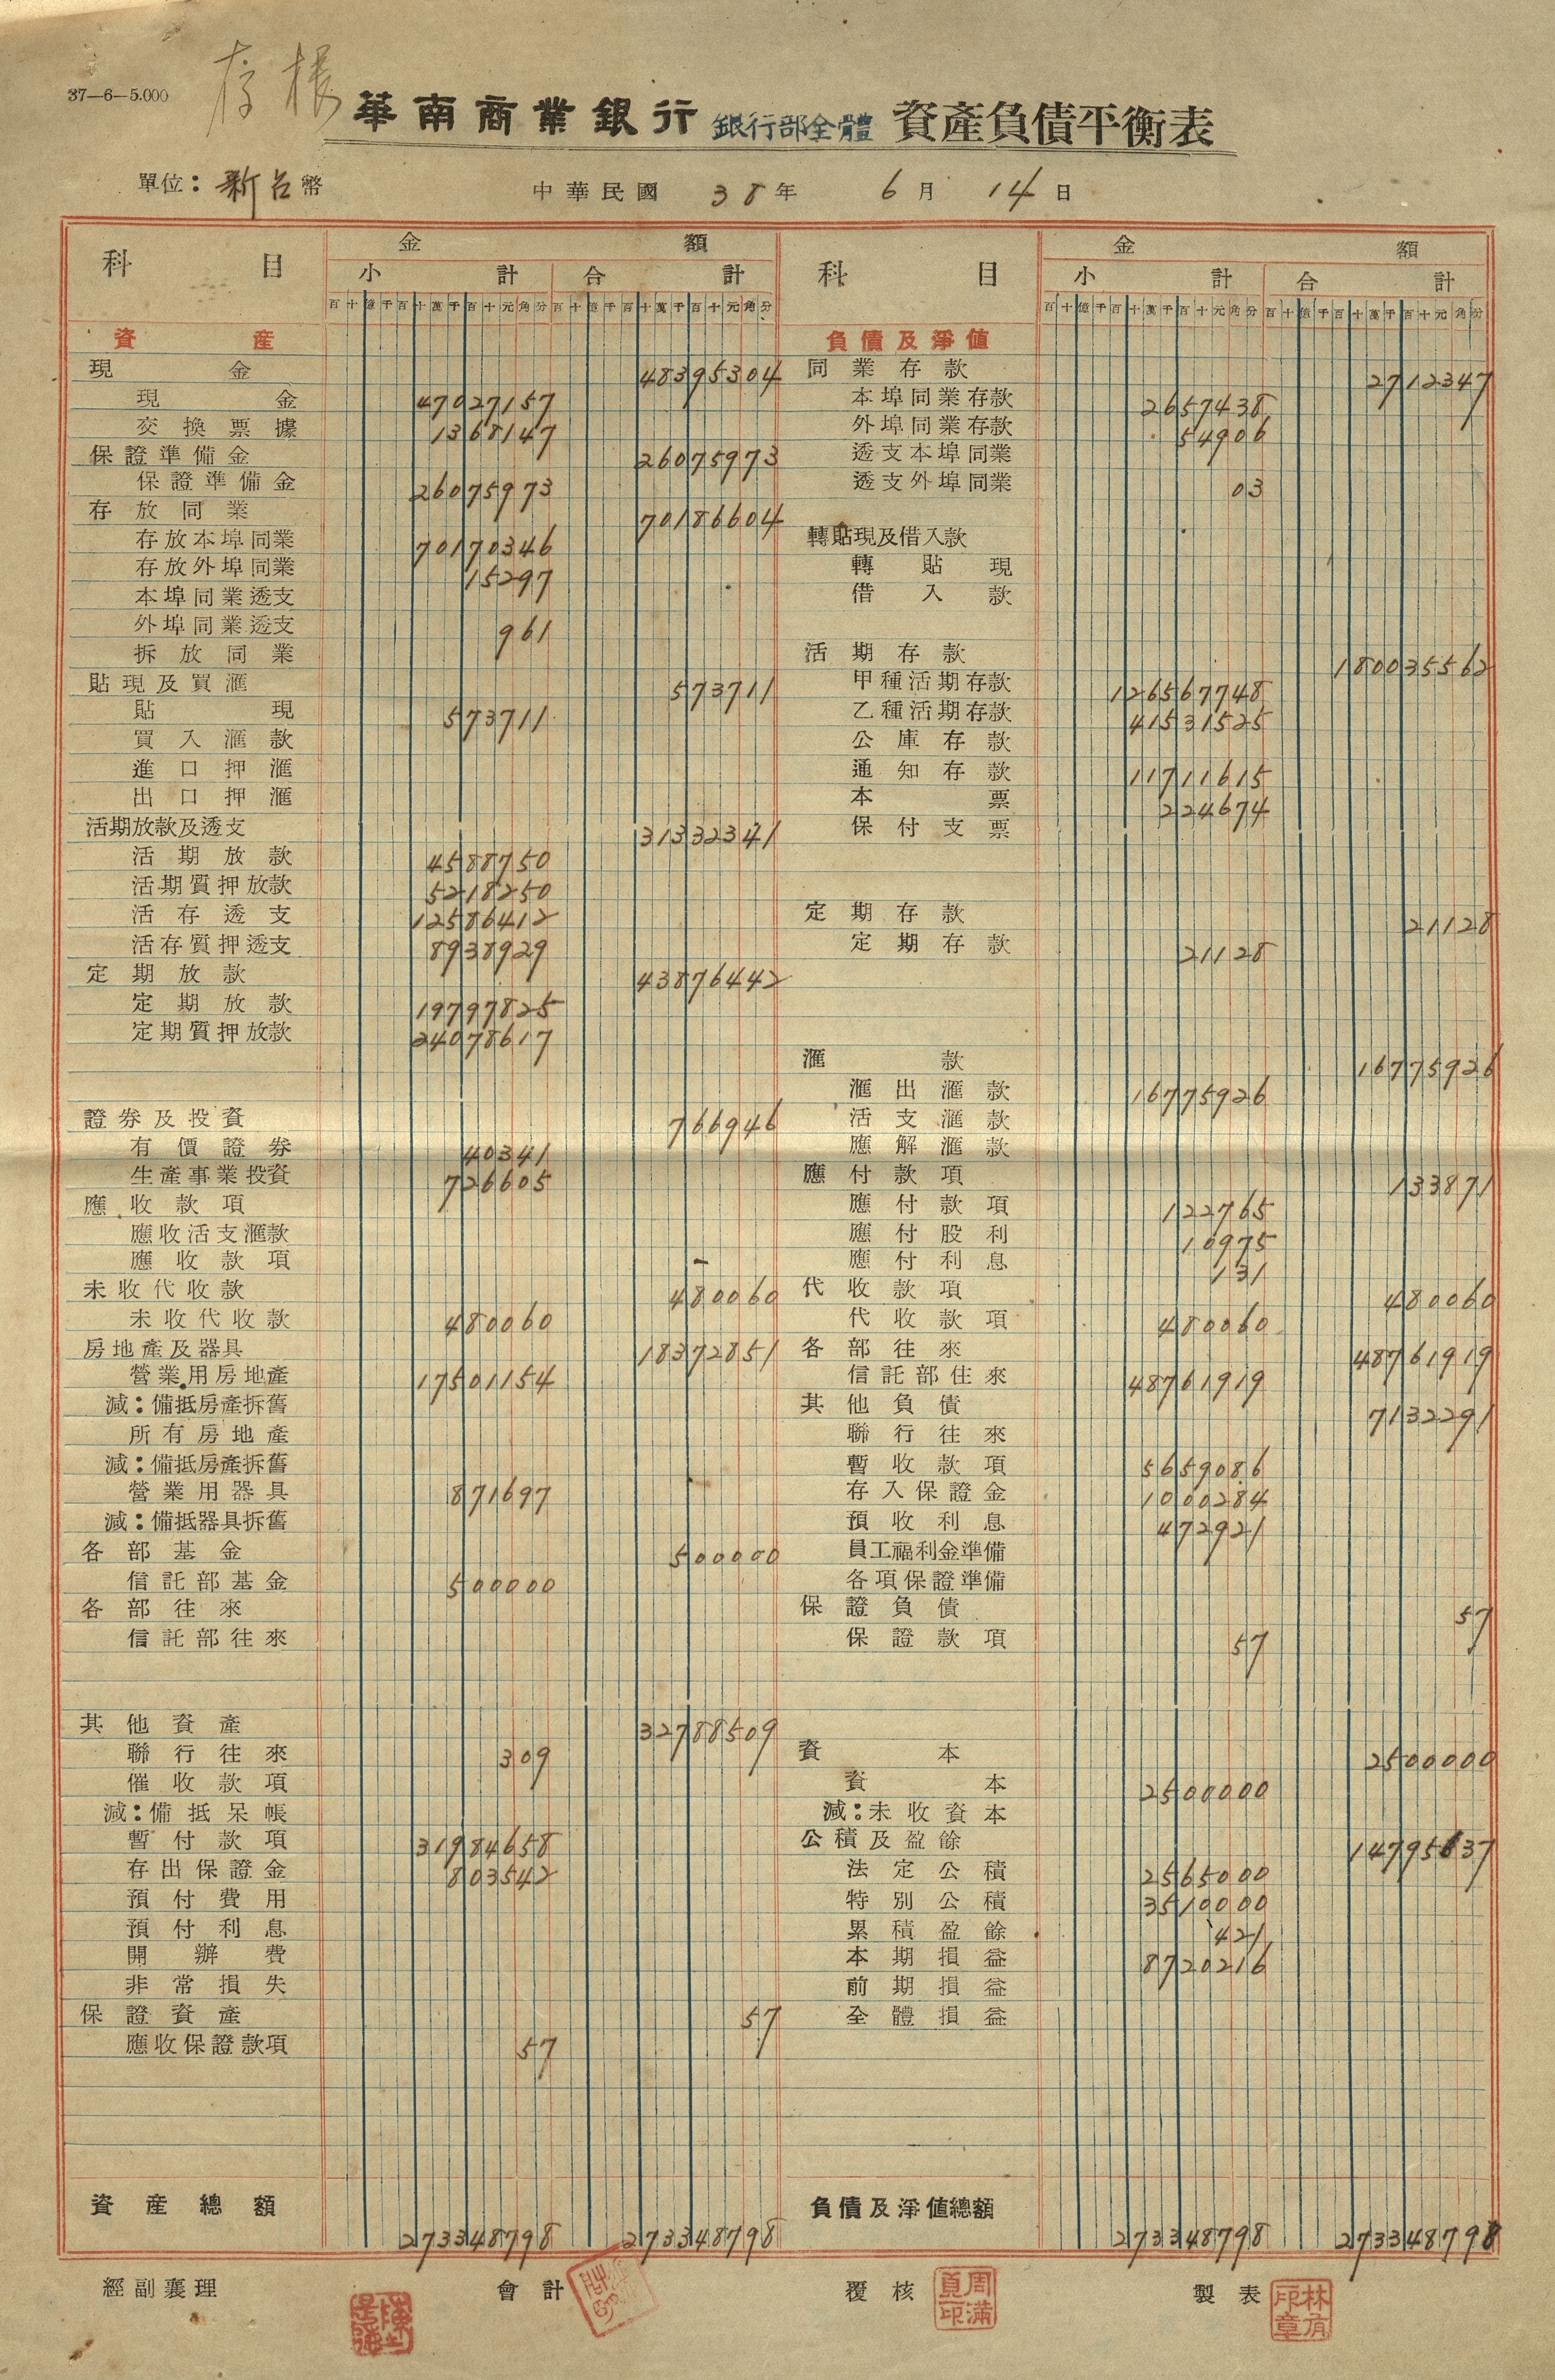 37—6—5.000
存根
華南商業銀行 銀行部全體 資產負債平衡表
單位：新台幣 中華民國 38年 6月 14日
科目 金額 科目 金額
小計 合計 小計 合計
百十億千百十萬千百十元角分 百十億千百十萬千百十元角分 百十億千百十萬千百十元角分 百十億千百十萬千百十元角分
資產
現金 48395304
現金 47027157
交換票據 1368147
保證準備金 26075973
保證準備金 26075973
存放同業 70186604
存放本埠同業 70170346
存放外埠同業 15297
本埠同業透支
外埠同業透支 961
拆放同業
貼現及買滙 573711
貼現 573711
買入滙款
進口押滙
出口押滙
活期放款及透支 31332341
活期放款 4588750
活期質押放款 5218250
活存透支 12586412
活存質押透支 8938929
定期放款 43876442
定期放款 19797825
定期質押放款 24078617
證券及投資 766946
有價證券 40341
生產事業投資 726605
應收款項
應收活支滙款
應收款項 -
未收代收款 480060
未收代收款 480060
房地產及器具 18372851
營業用房地產 17501154
減：備抵房產拆舊
所有房地產
減：備抵房產拆舊
營業用器具 871697
減：備抵器具拆舊
各部基金 500000
信託部基金 500000
各部往來
信託部往來
其他資產 32788509
聯行往來 309
催收款項
減：備抵呆帳
暫付款項 31984658
存出保證金 803542
預付費用
預付利息
開辦費
非常損失
保證資產 57
應收保證款項 57
資產總額 273348798 273348798
負債及淨值
同業存款 2712347
本埠同業存款 2657438
外埠同業存款 54906
透支本埠同業
透支外埠同業 03
轉貼現及借入款
轉貼現
借入款
活期存款 180035562
甲種活期存款 126567748
乙種活期存款 41531525
公庫存款
通知存款 11711615
本票 224674
保付支票
定期存款 21128
定期存款 21128
滙款 16775926
滙出滙款 16775926
活支滙款
應解滙款
應付款項 133871
應付款項 122765
應付股利 10975
應付利息 131
代收款項 480060
代收款項 480060
各部往來 48761919
信託部往來 48761919
其他負債 7132291
聯行往來
暫收款項 5659086
存入保證金 1000284
預收利息 472921
員工福利金準備
各項保證準備
保證負債 57
保證款項 57
資本 2500000
資本 2500000
減：未收資本
公積及盈餘 14795637
法定公積 2565000
特別公積 3510000
累積盈餘 421
本期損益 8720216
前期損益
全體損益
負債及淨值總額 273348798 273348798
經副襄理 會計 覆核 周滿頁印 製表